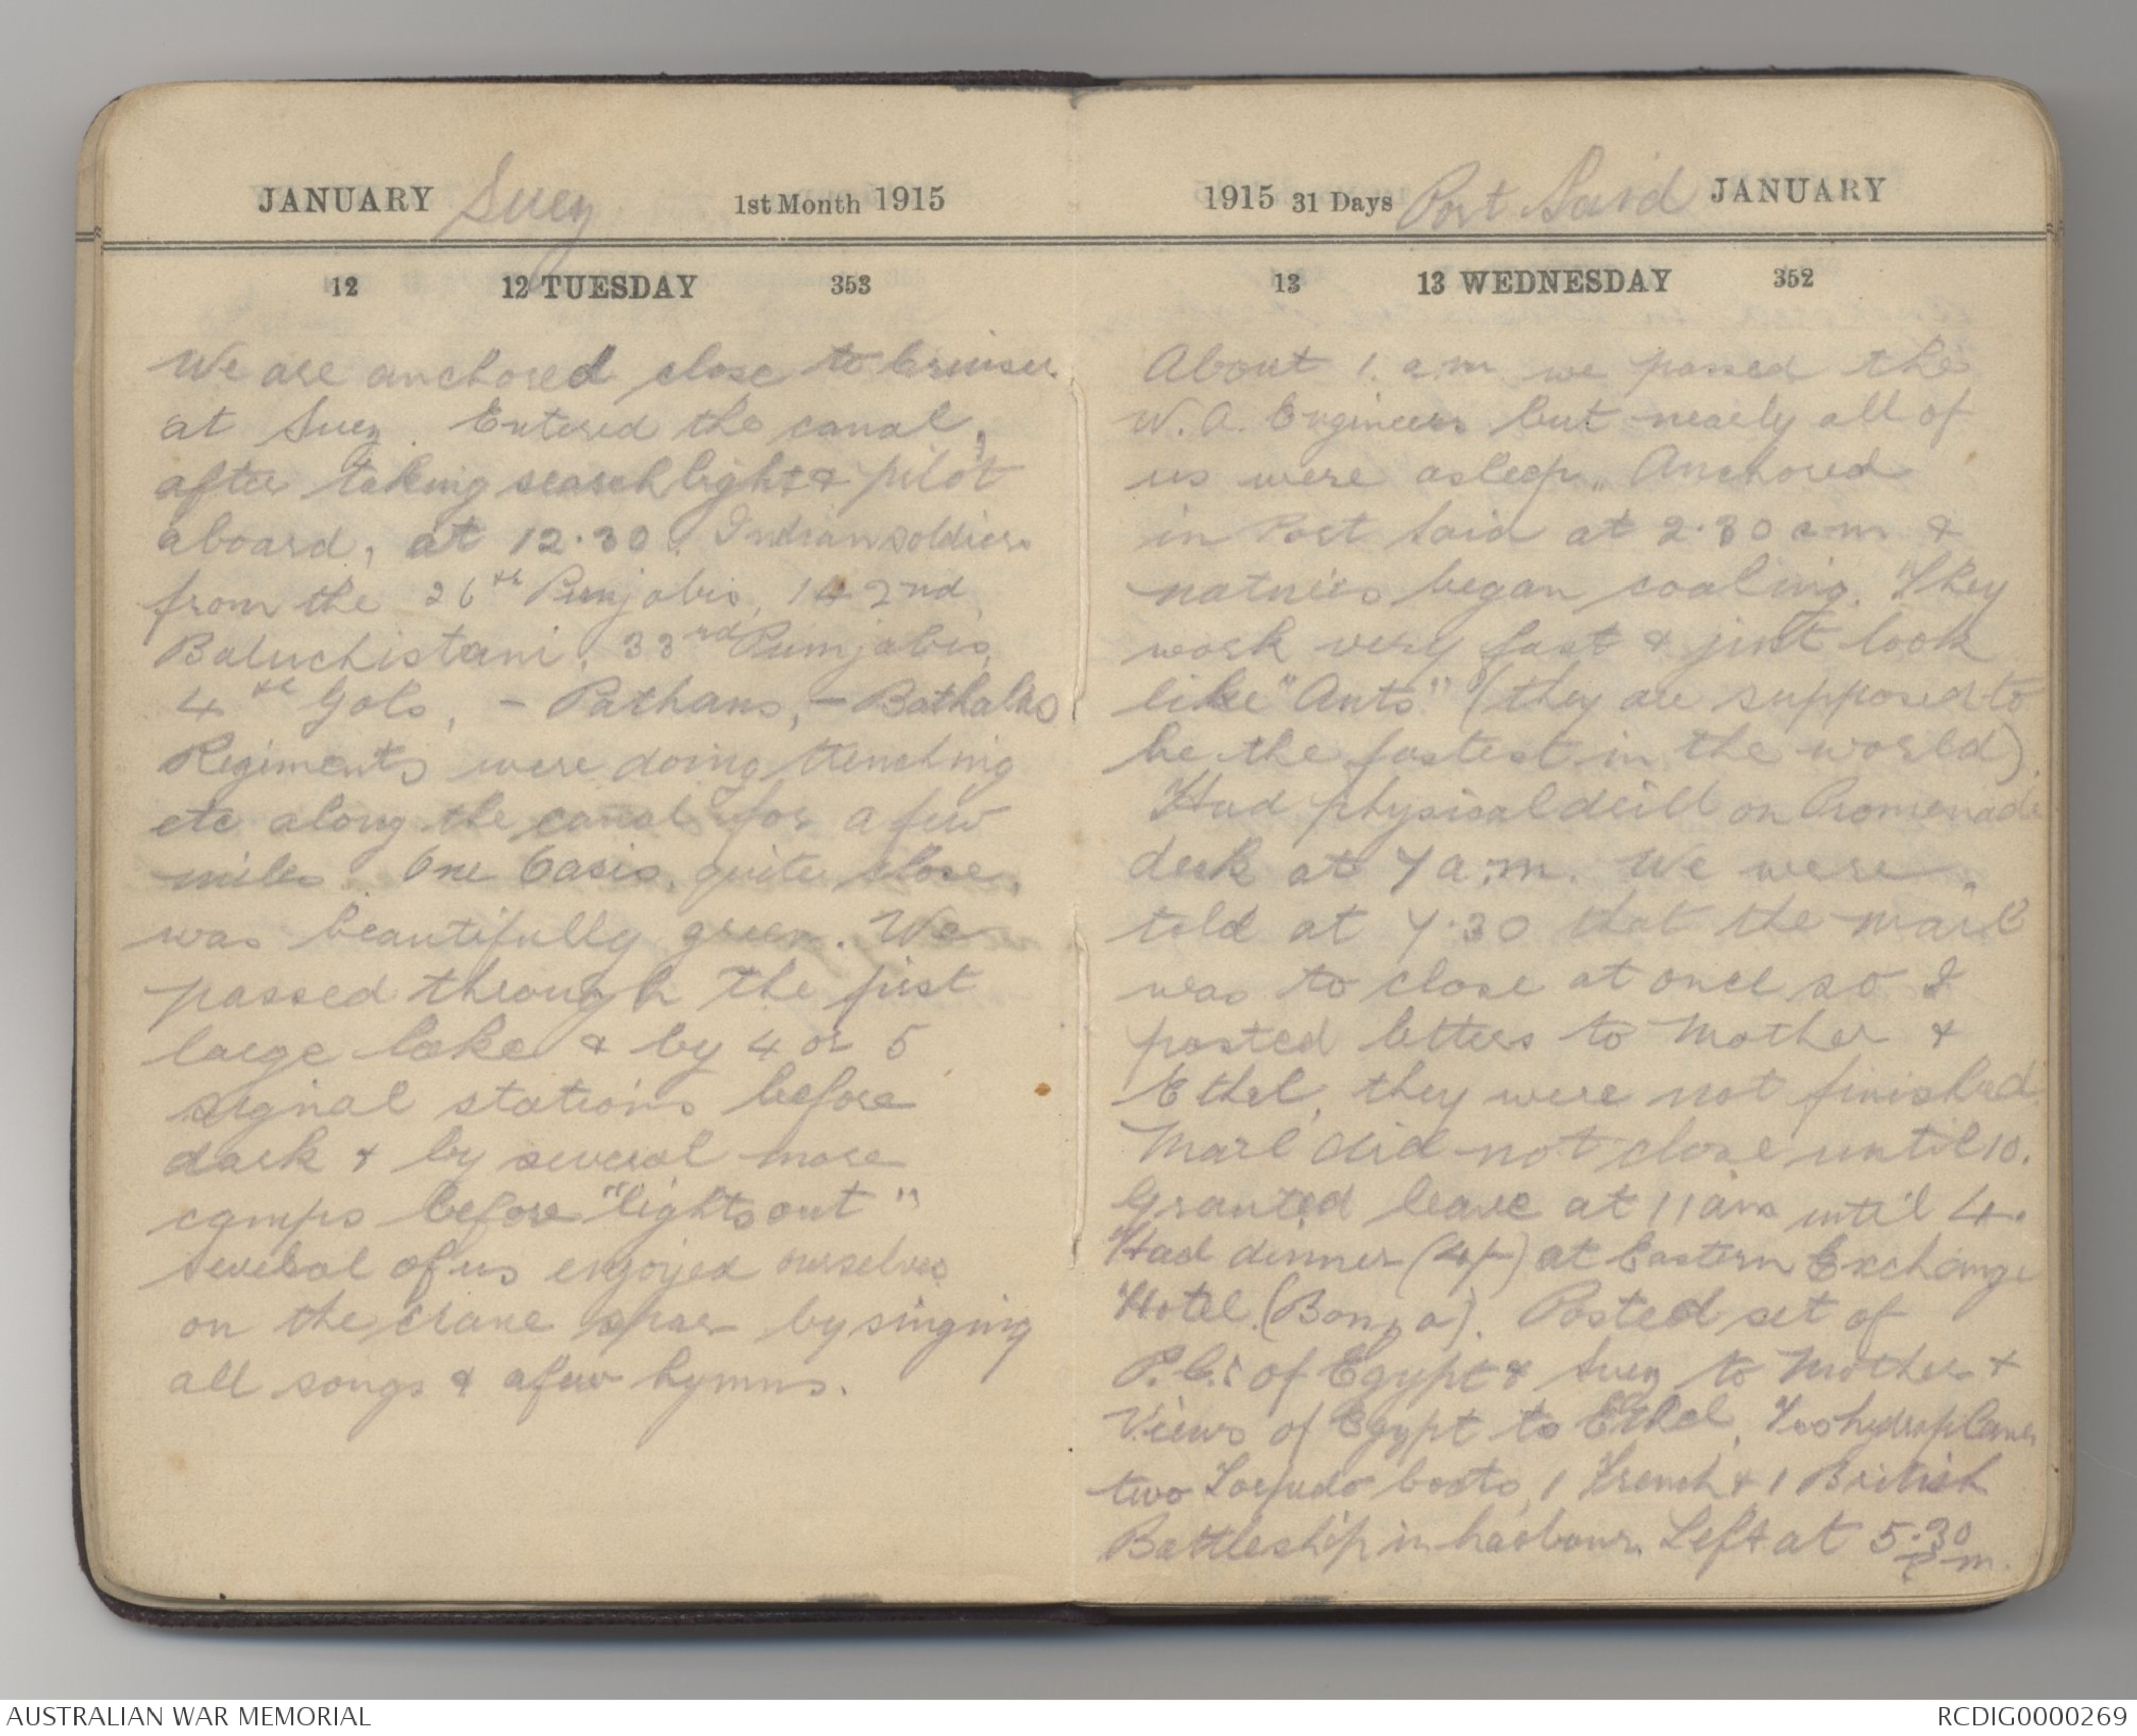 JANUARY Suez 1st Month 1915
12 12 TUESDAY 353
We are anchored close to cruiser
at Suez. Entered the canal,
after taking searchlight & pilot
aboard, at 12.30. Indian soldiers
from the 26th Punjabis, 142nd
Baluchistani, 33rd Pumjabis,
4th - Pathans, -
Regiments were doing trenching
etc along the canal for a few
miles. One Oasis, quite close,
was beautifully green. We
passed through the first
large lake & by 4 or 5
signal stations before
dark & by several more
camps before "lights out"
Several of us enjoyed ourselves
on the crane spar by singing
all songs & a few hymns.
1915 31 Days Port Said JANUARY
13 13 WEDNESDAY 352
About 1. a.m. we passed the
W.A. Engineers but nearly all of
us were asleep. Anchored
in Port Said at 2.30 a.m. &
natives began coaling. They
work very fast & just look
like "Ants" (they are supposed to
be the fastest in the world).
Had physical drill on Promenade
deck at 7 a.m. We were
told at 7.30 that the mail
was to close at once so I
posted letters to Mother &
Ethel, they were not finished.
Mail did not close until 10.
Granted leave at 11 am until 4.
Had dinner (4/-) at Eastern Exchange
Hotel. Posted set of
P.C.s of Egypt & Suez to Mother &
Views of Egypt to Ethel. Two hydroplanes
two Torpedo boats, 1 French & 1 British
Battleship in harbour. Left at 5.30
p.m.
AUSTRALIAN WAR MEMORIAL
RCDIG0000269